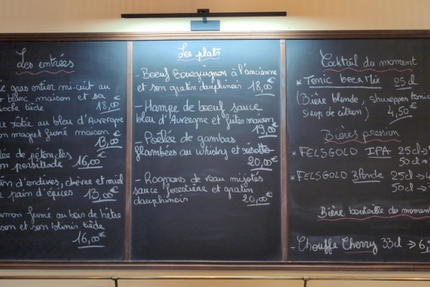 Les entrées
gras entier mi-cuit au
blanc maison et sa
tiède 18,00€
rôtie au bleu d'Auvergne
magret fumé maison
13,00€
de pétoncles
persillade
16,00€
d'endives, chèvre et miel
pain d'épices 13,00€
fumé au bois de hêtre
et son blinis tiède
16,00€
Les plats
- Boeuf Bourguignon à l'ancienne
et son gratin dauphinois
18,00€
- Hampe de boeuf sauce
bleu d'Auvergne et frites maison
19,00€
- Poêlée de gambas
flambées au whisky et risotto
20,00€
- Rognons de veau mijotés
sauce forestière et gratin
dauphinois 20,00€
Cocktail du moment
* Tonic 25cl
(Bière blonde, shweppes tonic
sirop de citron) 4,50€
Bières pression
* FELSGOLD IPA 25cl
50cl
* FELSGOLD Blonde 25cl
50cl
Bière bouteille du moment
- Chouffe Cherry 33cl → 6,